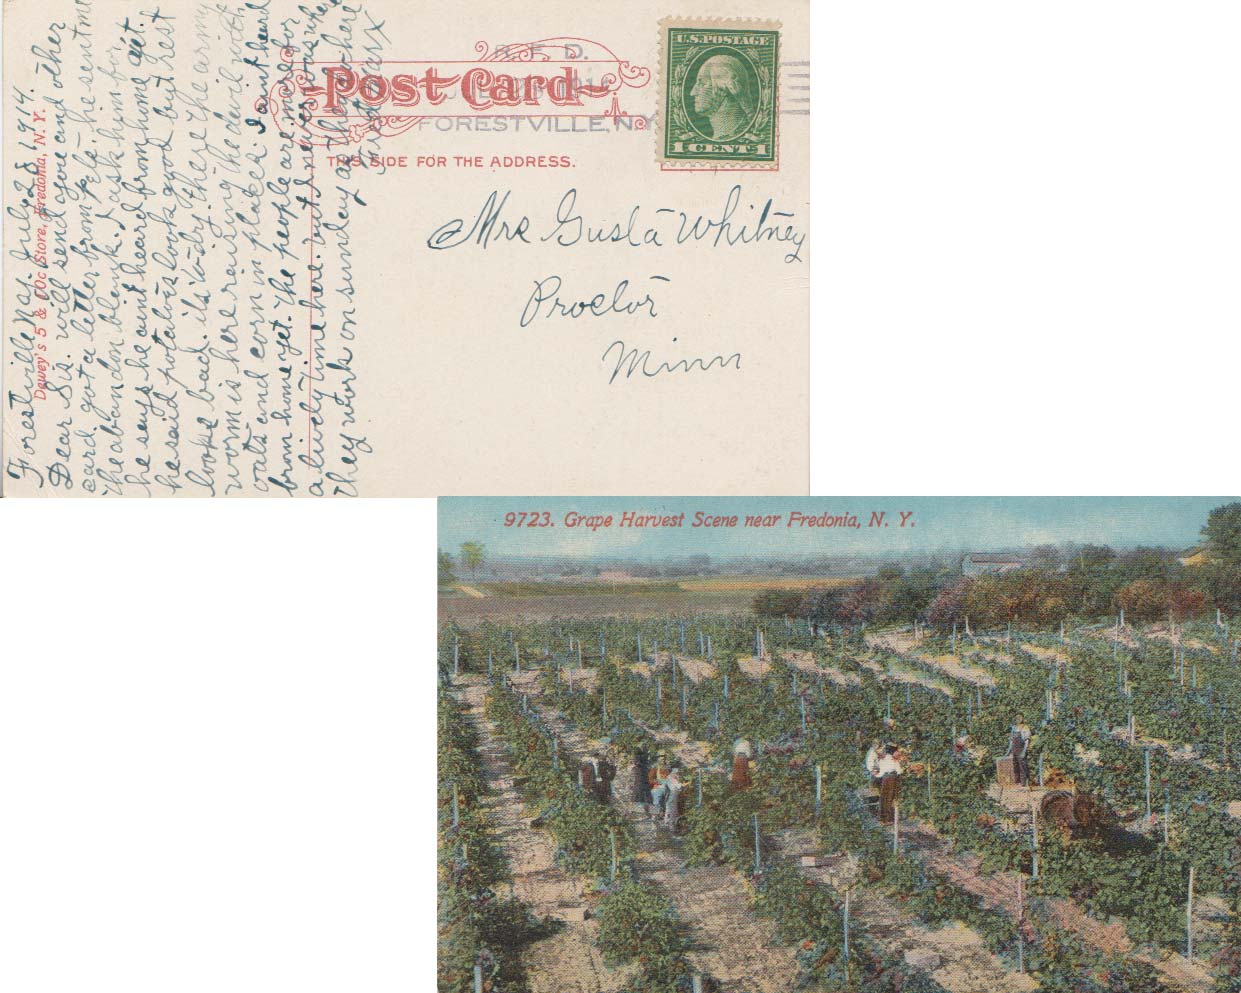 Forestville N.Y. July 28 1914.
Dear Sis. will send you and other
card. got a letter from Pete. he sent me
the abandon blank. I ask him for
he says he aint heard from home yet.
he said potatoes look good but rest
looks bad. its to dry. there the army
worm is here raising the devil with
oats and corn in places. I aint heard
from home yet. the people are more for
a lively time here. but I never was where
they work on sunday as they do here
Dewey's 5 & 10c Store, Fredonia, N. Y.
R. F. D.
Post Card
FORESTVILLE, N.Y.
THIS SIDE FOR THE ADDRESS.
U.S. POSTAGE
1 CENT 1
Mrs Gusta Whitney
Proctor
Minn
9723. Grape Harvest Scene near Fredonia, N. Y.